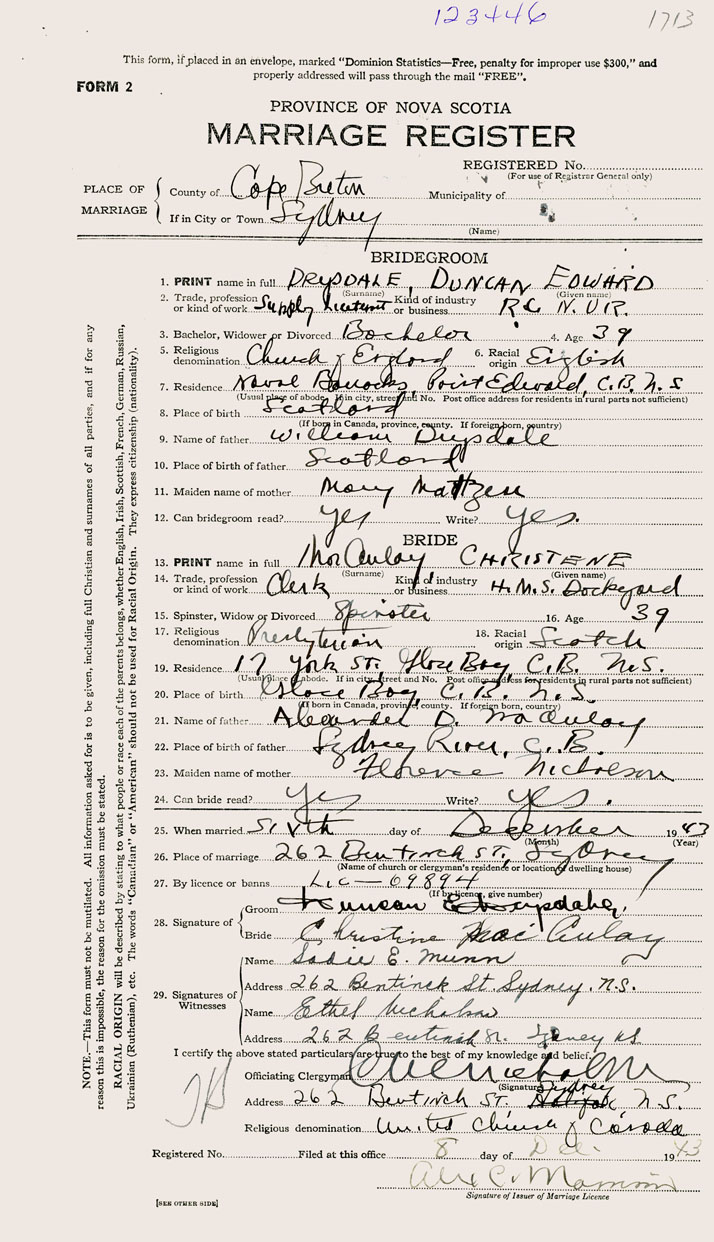 123446 1713
This form, if placed in an envelope, marked "Dominion Statistics—Free, penalty for improper use $300," and
properly addressed will pass through the mail "FREE".
FORM 2
PROVINCE OF NOVA SCOTIA
MARRIAGE REGISTER
REGISTERED No.
(For use of Registrar General only)
PLACE OF MARRIAGE
County of Cape Breton Municipality of
If in City or Town Sydney
(Name)
BRIDEGROOM
1. PRINT name in full DRYSDALE, DUNCAN EDWARD
(Surname) (Given name)
2. Trade, profession or kind of work Supply Lieutenant Kind of industry or business R.C.N.V.R.
3. Bachelor, Widower or Divorced Bachelor 4. Age 39
5. Religious denomination Church of England 6. Racial origin English
7. Residence Naval Barracks, Point Edward, C.B. N.S
(Usual place of abode. If in city, street and No. Post office address for residents in rural parts not sufficient)
8. Place of birth Scotland
(If born in Canada, province, county. If foreign born, country)
9. Name of father William Drysdale
10. Place of birth of father Scotland
11. Maiden name of mother Mary
12. Can bridegroom read? yes Write? yes.
BRIDE
13. PRINT name in full MacAulay CHRISTENE
(Surname) (Given name)
14. Trade, profession or kind of work Clerk Kind of industry or business H.M.S. Dockyard
15. Spinster, Widow or Divorced Spinster 16. Age 39
17. Religious denomination Presbyterian 18. Racial origin Scotch
19. Residence 17 York St, Glace Bay, C.B. N.S.
(Usual place of abode. If in city, street and No. Post office address for residents in rural parts not sufficient)
20. Place of birth Glace Bay, C.B. N.S.
(If born in Canada, province, county. If foreign born, country)
21. Name of father Alexander D. MacAulay
22. Place of birth of father Sydney River, C.B.
23. Maiden name of mother Florence Nicholson
24. Can bride read? yes Write? yes.
25. When married Sixth day of December 1943
(Month) (Year)
26. Place of marriage 262 Bentinck St., Sydney
(Name of church or clergyman's residence or location of dwelling house)
27. By licence or banns Lic—69894
(If by licence, give number)
28. Signature of
Groom Duncan E Drysdale
Bride Christine MacAulay
29. Signatures of Witnesses
Name Sadie E. Munn
Address 262 Bentinck St. Sydney. N.S.
Name Ethel Nicholson
Address 262 Bentinck St. Sydney NS
I certify the above stated particulars are true to the best of my knowledge and belief.
Officiating Clergyman
(Signature)
Sydney
Address 262 Bentinck St. Halifax N.S.
Religious denomination United Church of Canada
Registered No. Filed at this office 8 day of Dec. 1943
Signature of Issuer of Marriage Licence
[SEE OTHER SIDE]
NOTE.—This form must not be mutilated. All information asked for is to be given, including full Christian and surnames of all parties, and if for any
reason this is impossible, the reason for the omission must be stated.
RACIAL ORIGIN will be described by stating to what people or race each of the parents belongs, whether English, Irish, Scottish, French, German, Russian,
Ukrainian (Ruthenian), etc. The words "Canadian" or "American" should not be used for Racial Origin. They express citizenship (nationality).